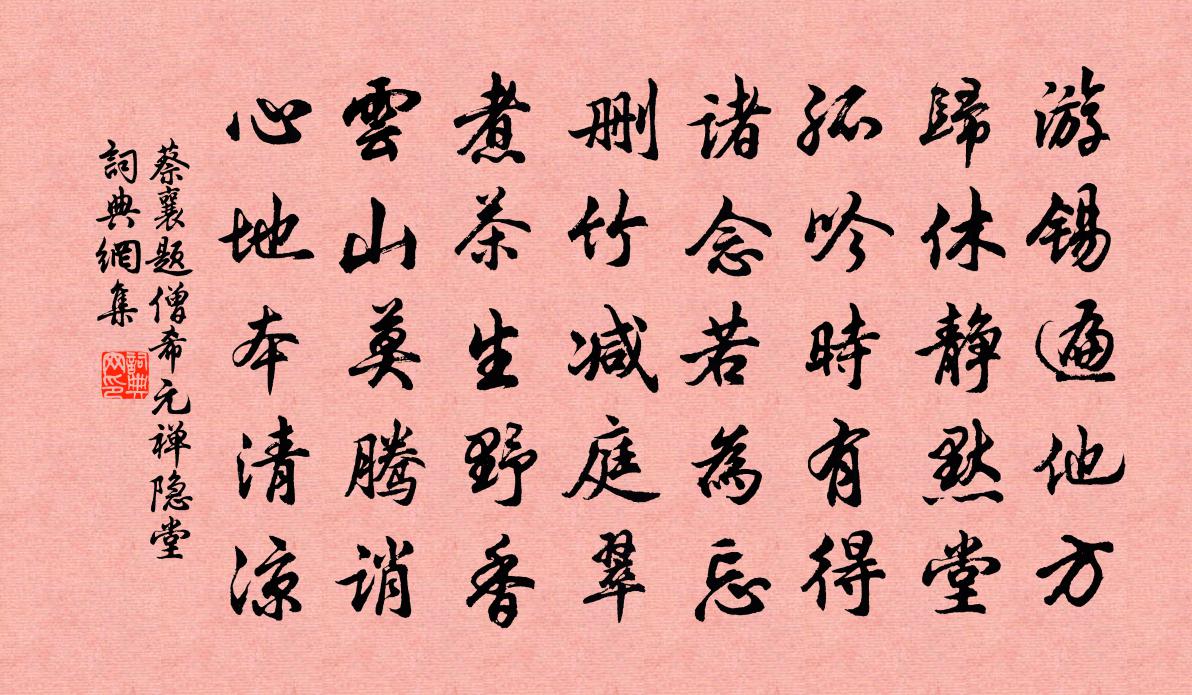 游锡遍他方
歸休静默堂
孤吟時有得
诸念若為忘
删竹减庭翠
煮茶生野香
雲山莫腾诮
心地本清凉
蔡襄题僧希元禅隐堂
詞典網集
詞典网印